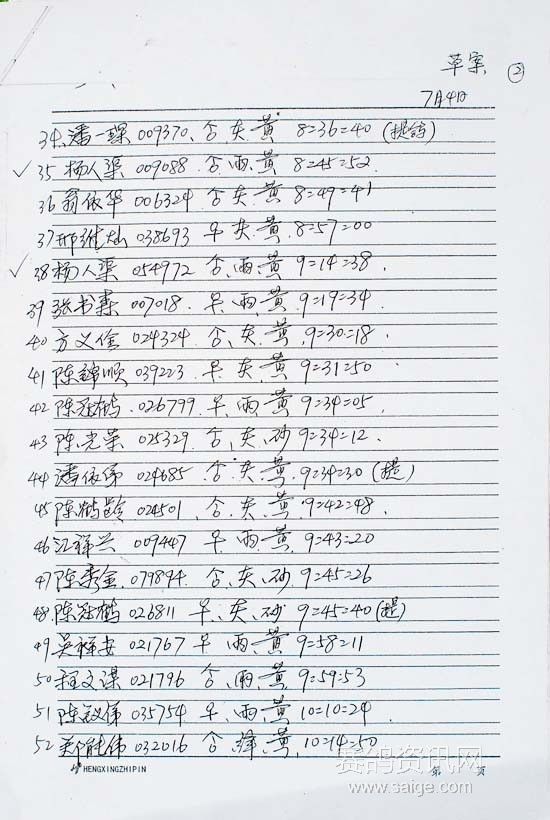 草案 ②
7月4日
34、潘一琛 009370、舍、灰、黄 8=36=40 (提詩)
✓ 35 杨人渠 009088 舍、雨、黄 8=45=52
36 翁依华 006324 舍、灰、黄 8=49=41
37 邢維灿 038693 早、灰、黄 8=57=00
✓ 38 杨人渠 054972 舍、雨、黄 9=14=38
39 张书森 007018 早、雨、黄 9=19=34
40 方义佺 024324 舍、灰、黄 9=30=18
41 陈錦順 039223 早、灰、黄 9=31=50
42 陈冠鹤 026799 早、雨、黄 9=34=05
43 陈光荣 025329 舍、灰、砂 9=34=12
44 潘依伟 024685 舍、灰、黄 9=34=30 (提)
45 陈鹤龄 024501 舍、灰、黄 9=42=48
46 江祥兴 009447 早、雨、黄 9=43=20
47 陈秀金 079894 舍、灰、砂 9=45=26
48 陈冠鹤 026811 早、灰、砂 9=45=40 (提)
49 吴祥安 021767 早、雨、黄 9=58=11
50 程文谋 021796 舍、雨、黄 9=59=53
51 陈敏伟 035754 早、雨、黄 10=10=24
52 郑能伟 032016 舍、绛、黄 10=14=50
HENGXINGZHIPIN 第 页
赛鸽资讯网
www.saige.com